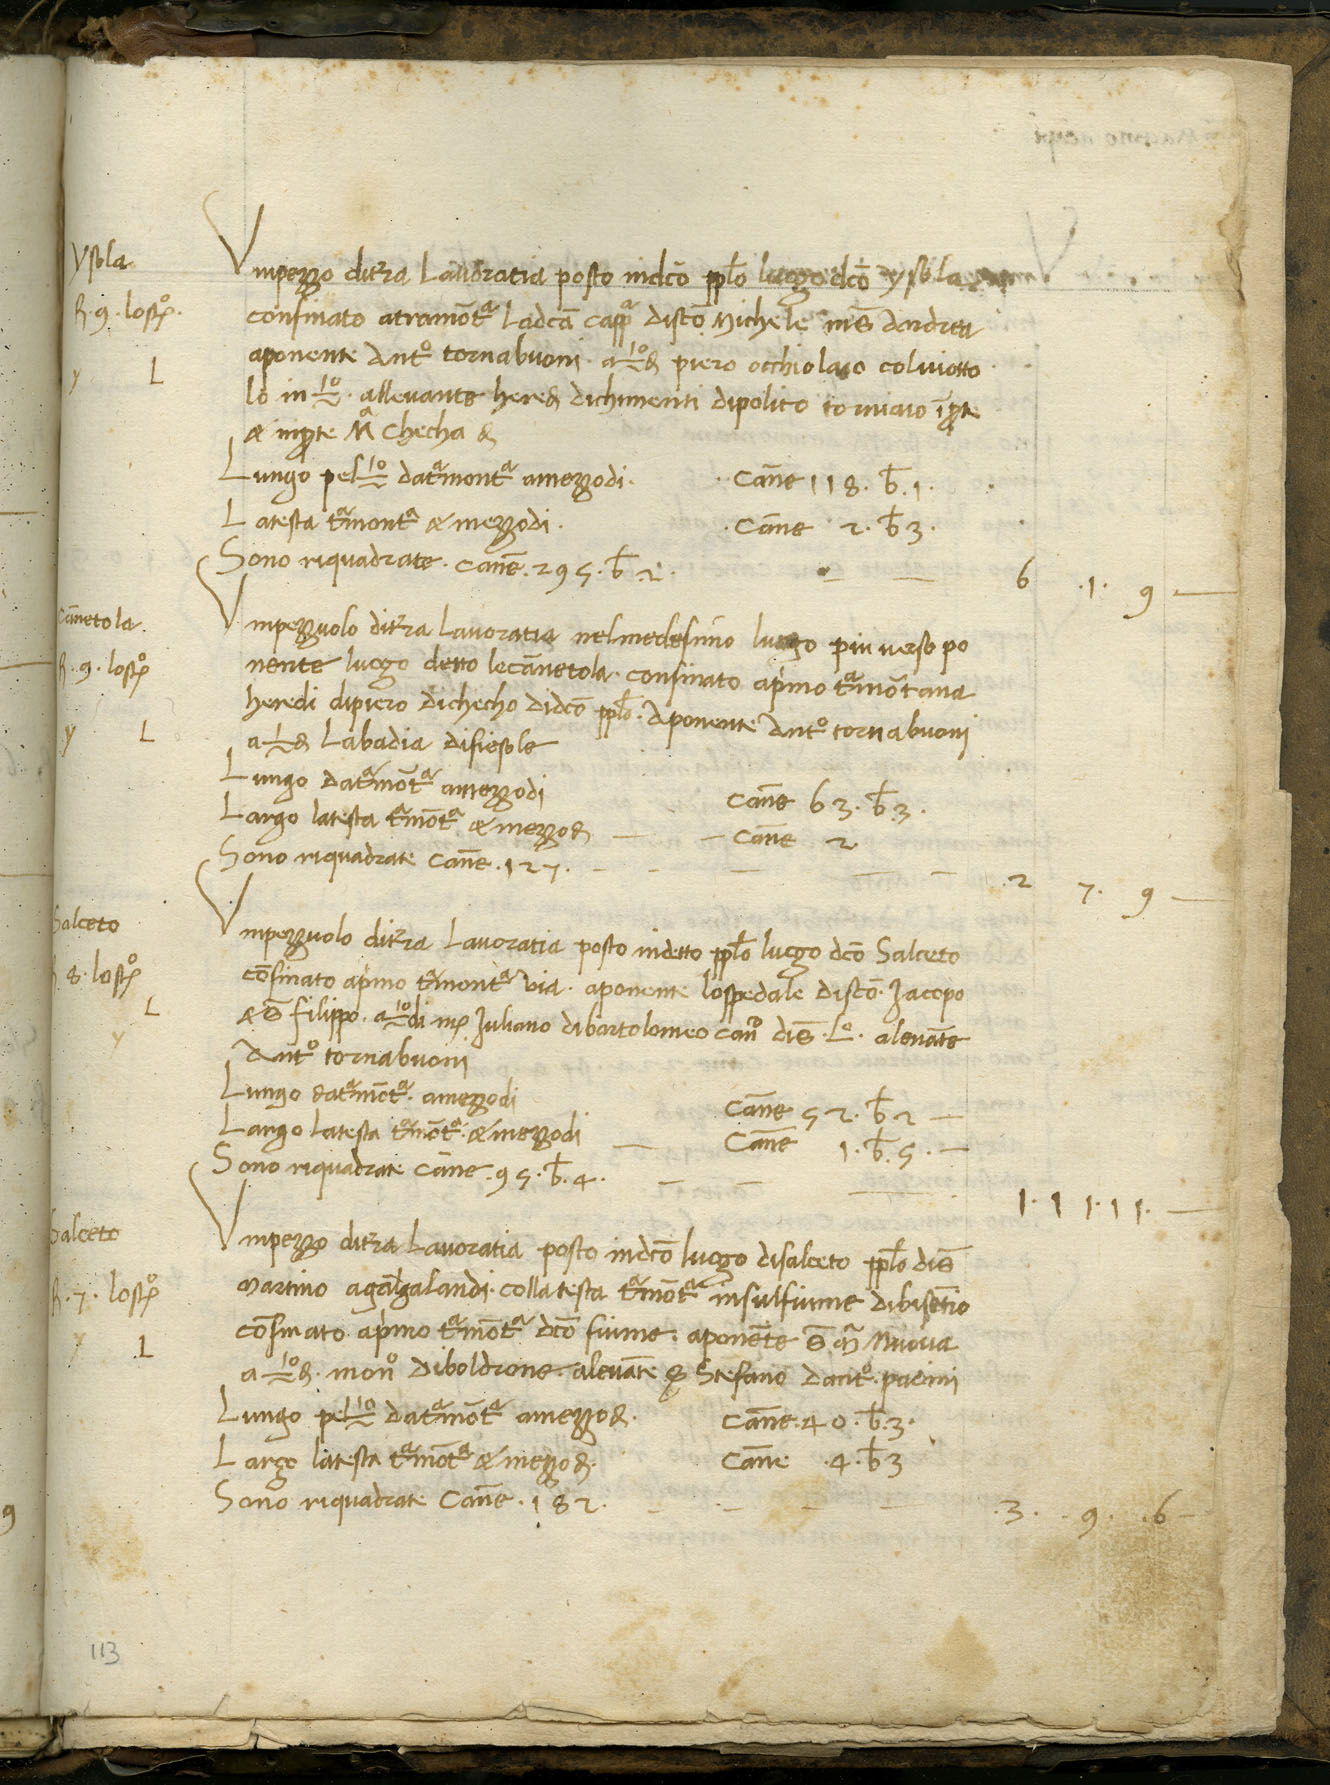 Ysola
R. 9. lostº.
y L
Vmpezzo ditrra Lauoratia posto indcõ pplo luogo dcõ ysola
confinato atramõtª Ladcã capp disco Michele inS dandrea
aponente Antº tornabuoni. a piero occhiolaio colviotto
lo in. alleuante hered dichimenti dipolito tornaio ĩprte
& inprte Mª Checha &
Lungo pel datªmontª amezzodi. Cãne 118. b. 1.
Latesta tªmontª & mezzodi. Cãne 2. b 3.
Sono riquadrate. canẽ. 295. b 2. 6 .1. 9
Cãnetola
R. 9. lostº
y L
Vmpezzuolo ditrra Lauoratia nelmedesimo luogo piu uerso po
nente luogo detto lecãnetola. confinato apmo tªmõtana
heredi dipiero dichecho didcõ pplo. Aponente Antº tornabuoni
a Labadia difiesole
Lungo datªmõtª amezzodi Cãne 63. b. 3.
Largo latesta tªmõtª & mezzod Cãne 2
Sono riquadrate Canẽ. 127. .2 7. 9
Salceto
R. 8. lostº
L
y
Vmpezzuolo ditrra Lauoratia posto indetto pplo luogo dcõ Salceto
cõfinato apmo tªmontª via. aponente lospedale discõ. Jacopo
& S filippo. a di Juliano dibartolomeo canº diS. Lº. aleuãte
Antº tornabuoni
Lungo datªmõtª. amezzodi Cãne 52. b 2
Largo latesta tªmõtª. & mezzodi Canẽ 1. b. 5.
Sono riquadrate Cãne. 95. b. 4. 1. 11. 11.
Salceto
R. 7. lostº
y L
Vmpezzo ditrra Lauoratia posto indcõ luogo disalceto pplo diS
Martino agãgalandi. collatesta tªmõtª insulfiume dibisẽtio
cõfinato apmo tªmõtª dcõ fiume. aponẽte S Mª Nuoua
a. monº Diboldrone. aleuãte Stefano dantº. pacini
Lungo pel datªmõtª amezzod. Cãne. 40. b. 3.
Largo latesta tªmõtª & mezzod. Cãne .4. b 3
Sono riquadrate Canẽ. 182. .3. .9. .6
113